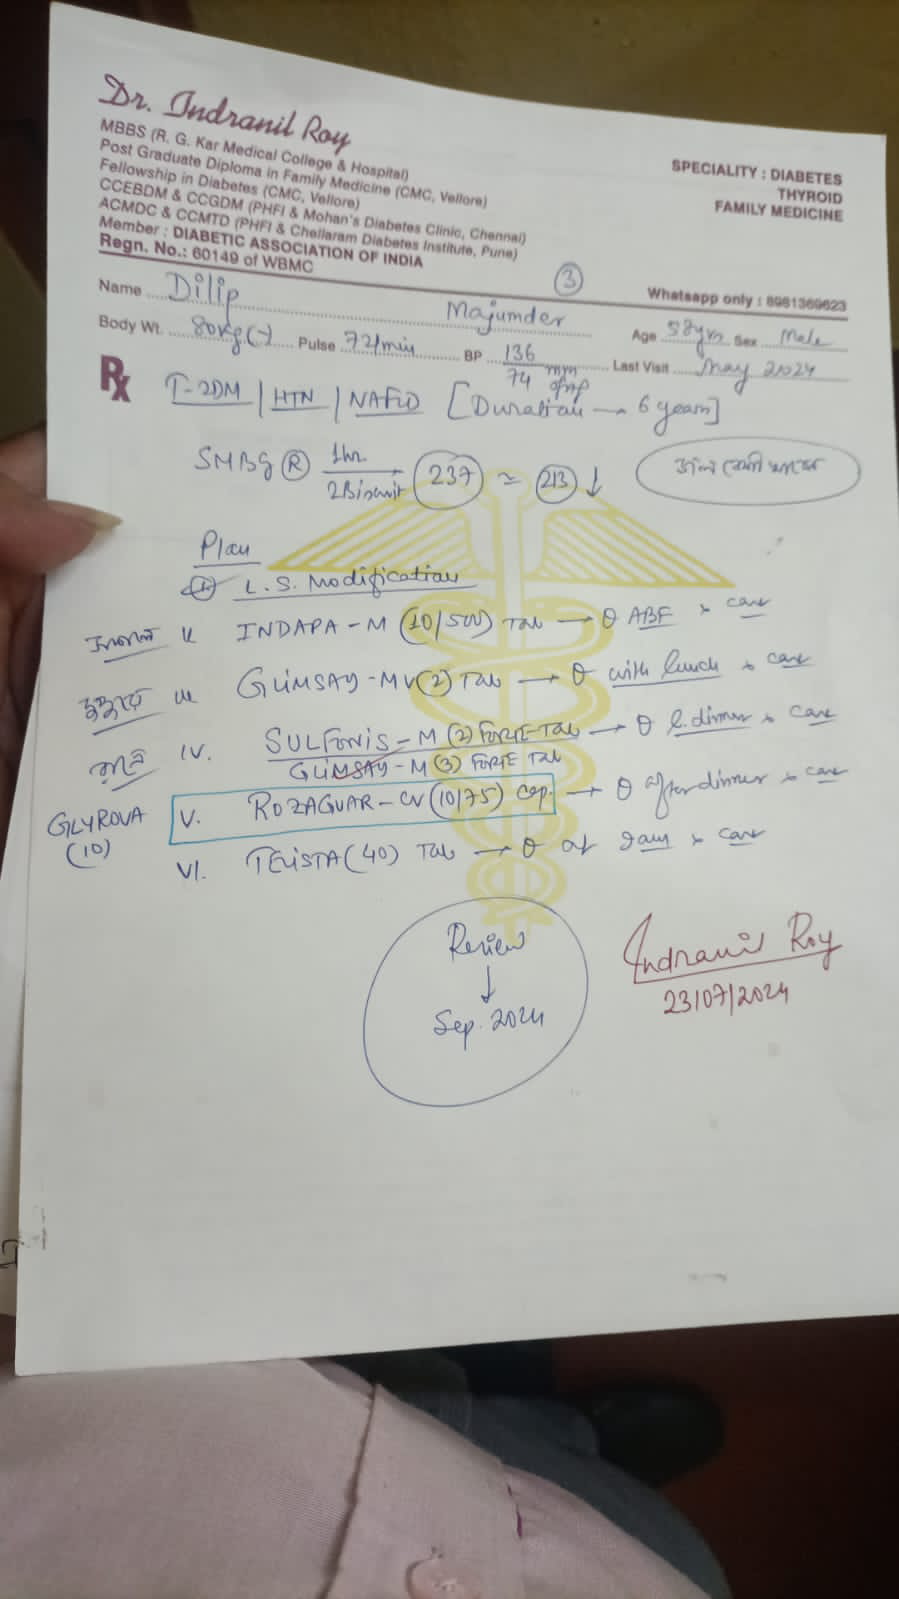 Dr. Indranil Roy
MBBS (R. G. Kar Medical College & Hospital)
Post Graduate Diploma in Family Medicine (CMC, Vellore)
Fellowship in Diabetes (CMC, Vellore)
CCEBDM & CCGDM (PHFI & Mohan's Diabetes Clinic, Chennai)
ACMDC & CCMTD (PHFI & Chellaram Diabetes Institute, Pune)
Member : DIABETIC ASSOCIATION OF INDIA
Regn. No.: 60149 of WBMC
SPECIALITY : DIABETES
THYROID
FAMILY MEDICINE
3
Whatsapp only : 8981369623
Name Dilip Majumder Age 58yrs Sex Male
Body Wt. 80kg(-) Pulse 72/min BP 136/74 mm of Hg Last Visit May 2024
Rx T-2DM | HTN | NAFLD [Duration → 6 years]
SMBG R 1hr. / 2Biscuit 237 ≈ 213 ↓
Plan
L.S. Modification
সকালে INDAPA-M (10/500) Tab → ABF x cont
দুপুরে GLIMSAY-MV(2) Tab → with lunch x cont
রাতে IV. SULFONIS-M (2) FORTE Tab → dinner x cont
GLIMSAY-M (3) FORTE Tab
GLYROVA (10)
V. ROZAGUAR-CV (10/75) Cap. → after dinner x cont
VI. TELISTA (40) Tab → at 9am x cont
Review
↓
Sep. 2024
Indranil Roy
23/07/2024